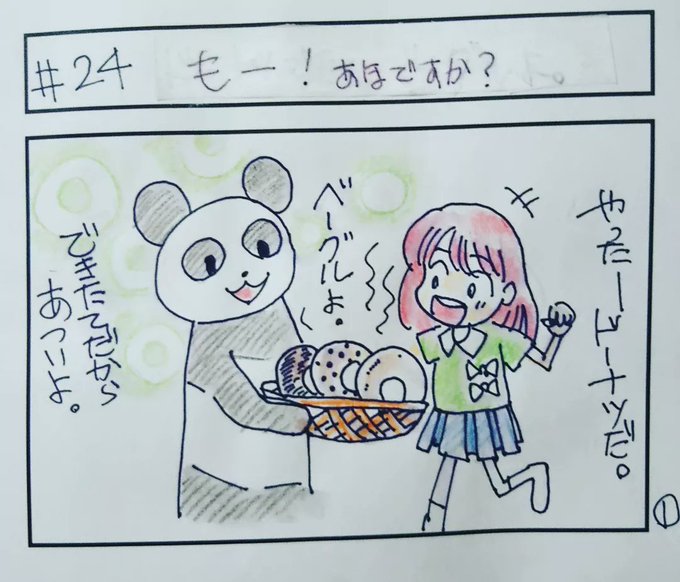 #24 もー！あほですか？
やったードーナツだ。
ベーグルよ。
できたてだから
あついよ。
①